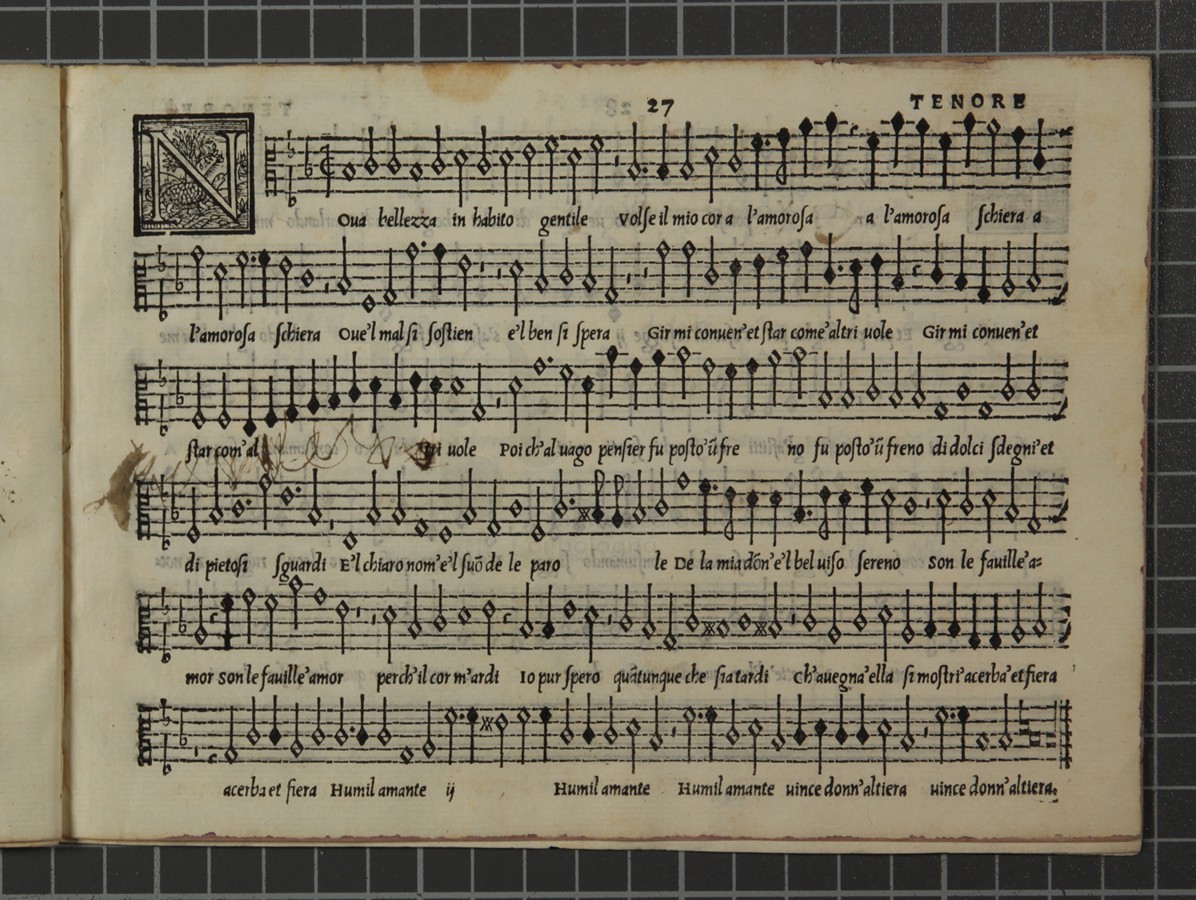 27 TENORE
NOua bellezza in habito gentile Volse il mio cor a l'amorosa a l'amorosa schiera a
l'amorosa schiera Oue'l mal si sostien e'l ben si spera Gir mi conuen'et star come'altri uole Gir mi conuen'et
star com'al tri uole Poi ch'al uago pensier fu posto'ũ fre no fu posto'ũ freno di dolci sdegni'et
di pietosi sguardi E'l chiaro nom'e'l suõ de le paro le De la mia dõn'e'l bel uiso sereno Son le fauille'a=
mor son le fauille'amor perch'il cor m'ardi Io pur spero quãtunque che sia tardi Ch'auegna'ella si mostri'acerba'et fiera
acerba et fiera Humil amante ij Humil amante Humil amante uince donn'altiera uince donn'altiera.